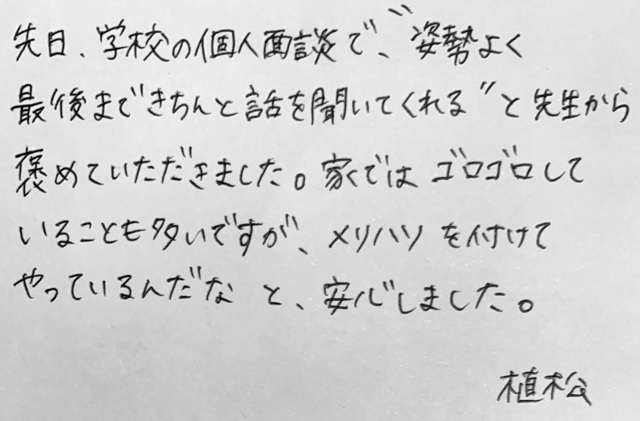 先日、学校の個人面談で、〝姿勢よく
最後まできちんと話を聞いてくれる〟と先生から
褒めていただきました。家ではゴロゴロして
いることも多いですが、メリハリを付けて
やっているんだなと、安心しました。
植松